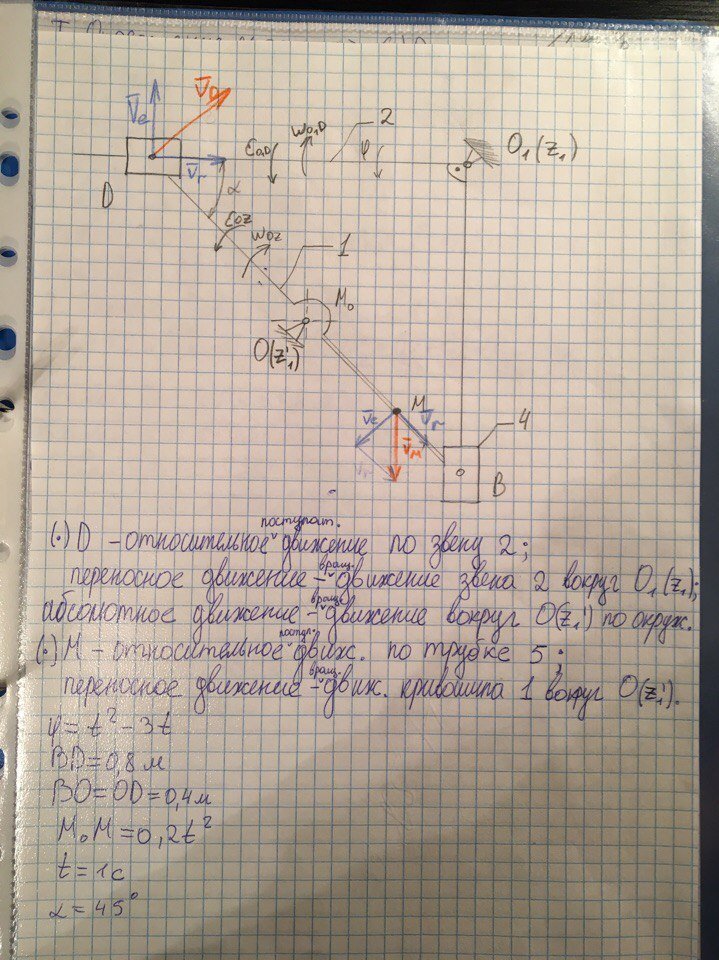 V̄D
V̄e
2
O₁(z₁)
ω₀₁D
ε₀D
φ
V̄r
D
α
ε₀z
ω₀z
1
M₀
O(z₁')
M
V̄e
V̄r
V̄M
4
B
(·) D – относительное поступат. движение по звену 2;
переносное движение – вращ. движение звена 2 вокруг O₁(z₁);
абсолютное движение – вращ. движение вокруг O(z₁') по окруж.
(·) M – относительное поступ. движ. по трубке 5;
переносное движение – вращ. движ. кривошипа 1 вокруг O(z₁').
φ = t² – 3t
BD = 0,8 м
BO = OD = 0,4 м
M₀M = 0,2t²
t = 1 с
α = 45°